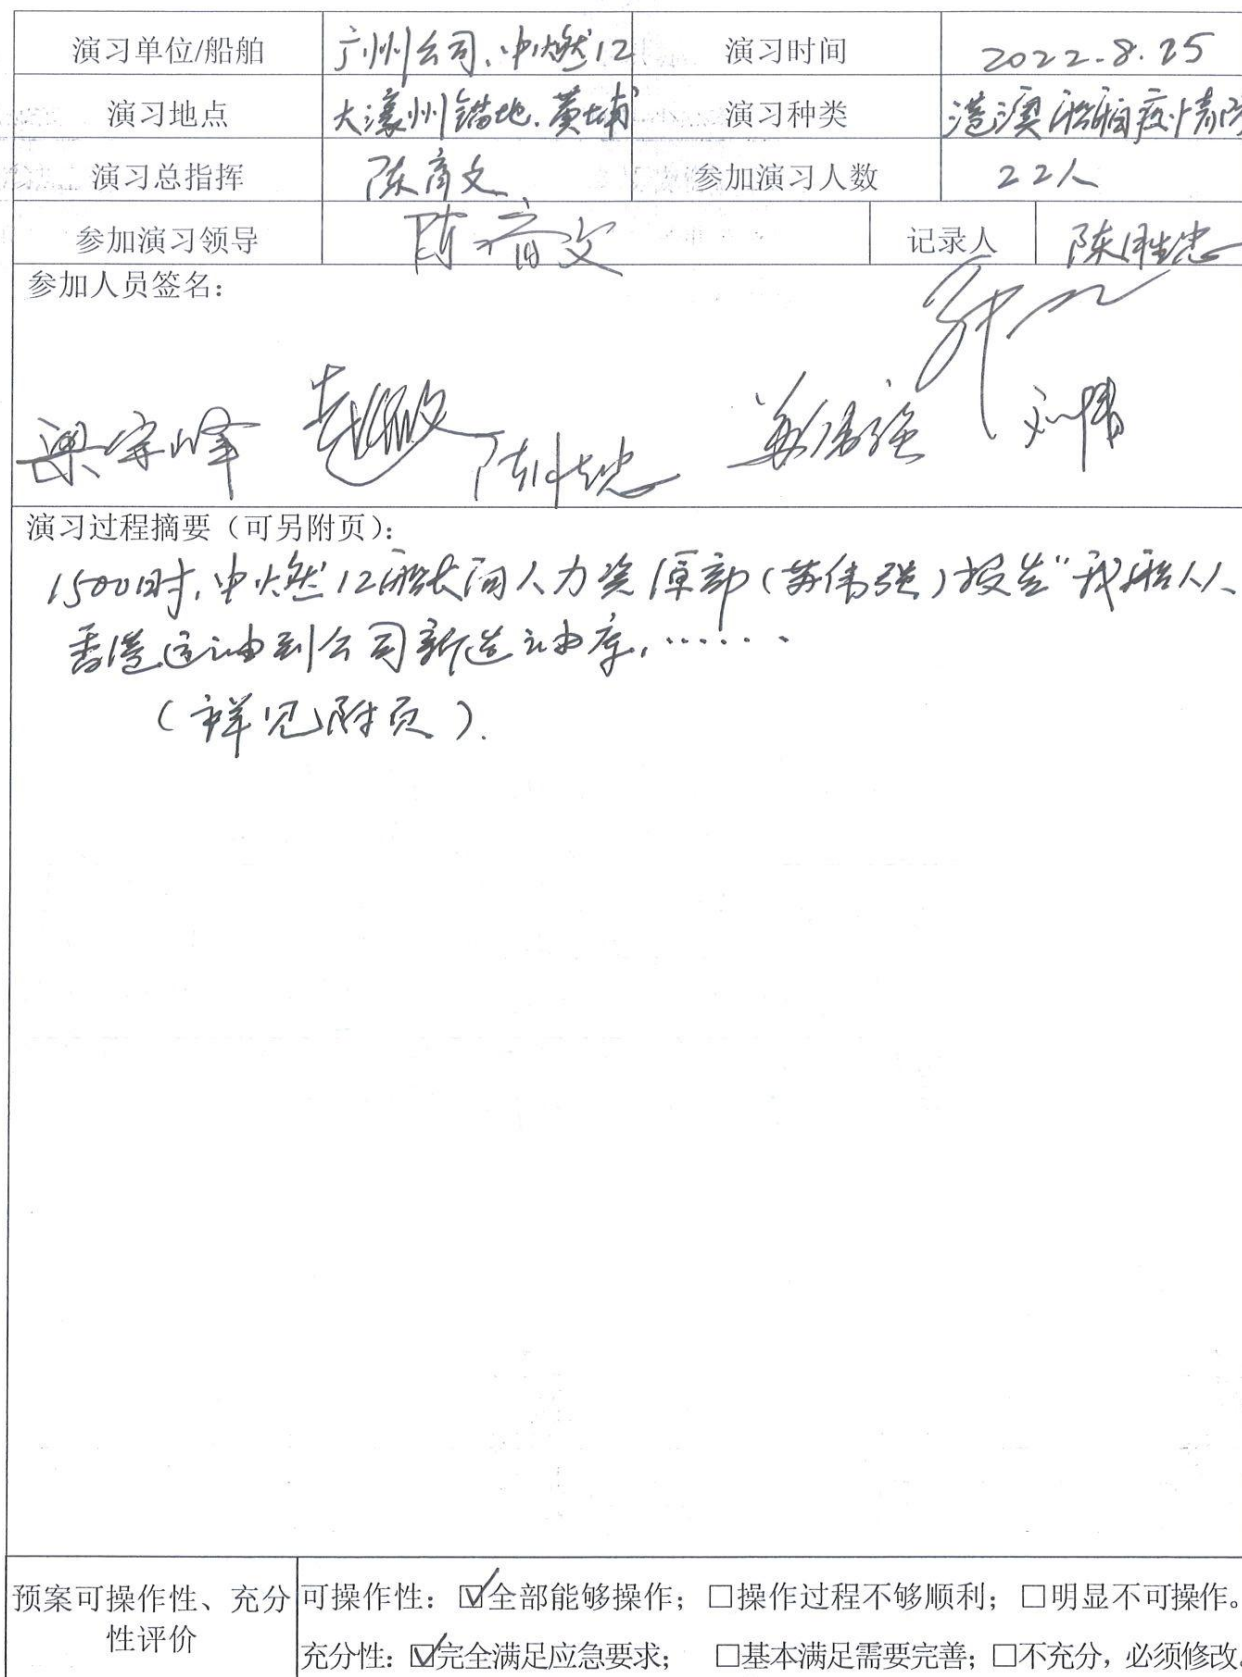 演习单位/船舶 广州公司、中燃12 演习时间 2022.8.25
演习地点 大濠州锚地、黄埔 演习种类 港澳船舶疫情防
演习总指挥 陈育文 参加演习人数 22人
参加演习领导 陈育文 记录人 陈胜忠
参加人员签名：
梁宇峰 赵敏 陈胜忠 苏伟强 刘博
演习过程摘要（可另附页）：
1500时，中燃12船长向人力资源部（苏伟强）报告"我船从
香港运油到公司新造油库，……
（详见附页）.
预案可操作性、充分性评价
可操作性：☑全部能够操作；□操作过程不够顺利；□明显不可操作。
充分性：☑完全满足应急要求； □基本满足需要完善；□不充分，必须修改。